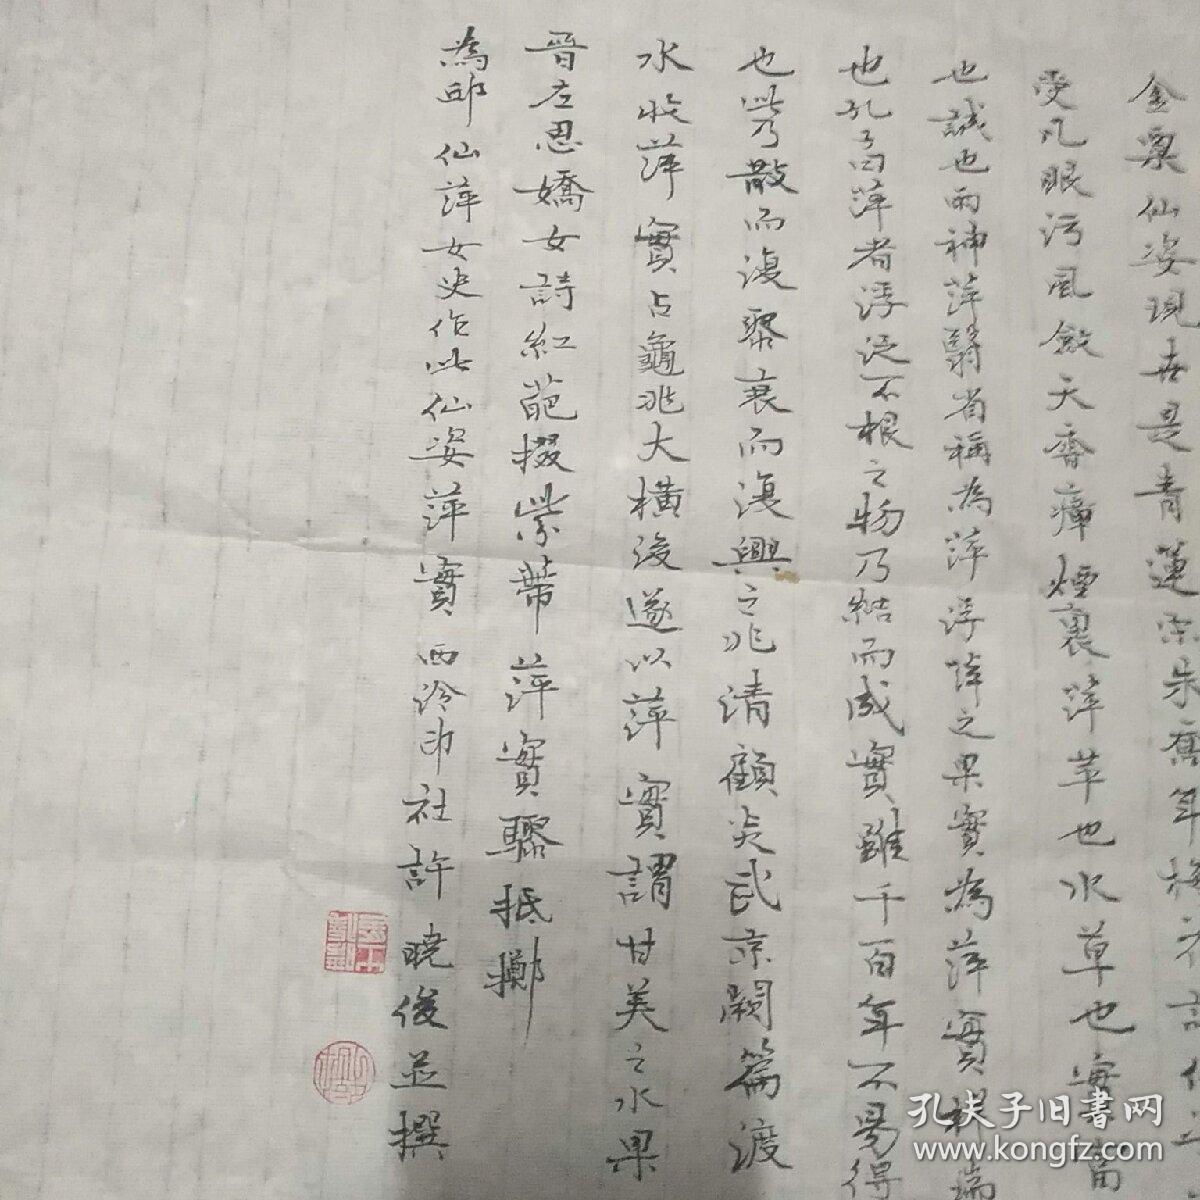 金粟仙姿現世是青蓮宗朱舊年梅花記
受凡眼污風飲天香瘴煙裏萍苹也水草也實富
也誠也雨神萍翳省稱為萍浮萍之果實為萍實楫瑞
也孔子曰萍者浮泛不根之物乃結而成實雖千百年不易得
也兆乃散而復聚衰而復興之兆清顧炎武京闕篇渡
水收萍實占龜兆大橫後遂以萍實謂甘美之水果
晉左思嬌女詩紅葩掇紫蔕萍實驟抵擲
為邱仙萍女史作此仙姿萍實西泠印社許曉俊並撰
孔夫子旧書网
www.kongfz.com